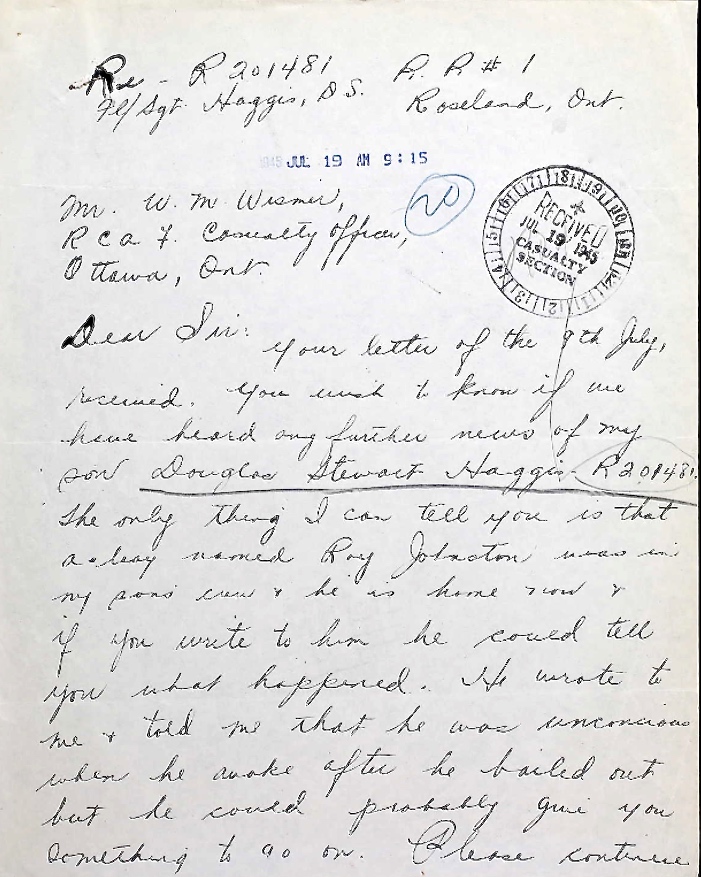 Re - R201481 R. R. # 1
Fl/Sgt. Haggis, D.S. Roseland, Ont.
1945 JUL 19 AM 9:15
20
Mr. W. M. Wismer,
R C A F. Casualty Officer,
Ottawa, Ont.
RECEIVED
JUL 19 1945
CASUALTY
SECTION
Dear Sir:
Your letter of the 9th July,
received. You wish to know if we
have heard any further news of my
son Douglas Stewart Haggis R201481.
The only thing I can tell you is that
a boy named Roy Johnston was in
my sons crew & he is home now &
if you write to him he could tell
you what happened. He wrote to
me & told me that he was unconcious
when he awoke after he bailed out
but he could probably give you
something to go on. Please continue